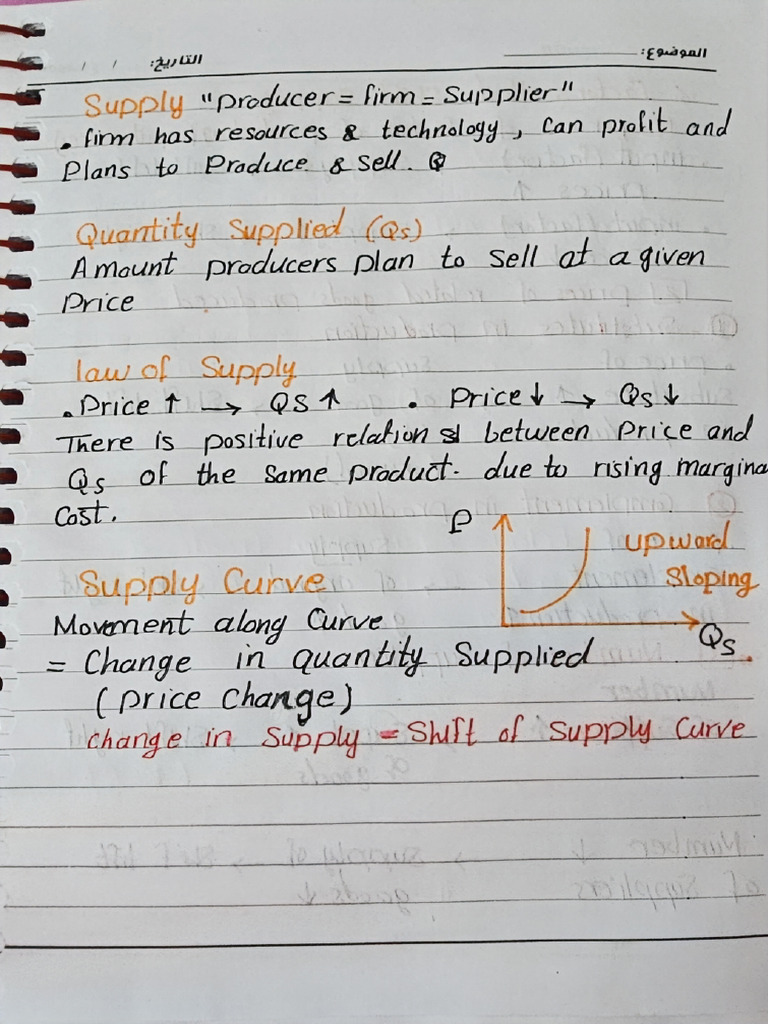 الموضوع:
التاريخ: / /
Supply "Producer = firm = Supplier"
. firm has resources & technology, can profit and
Plans to Produce & sell.
Quantity Supplied (Qs)
Amount producers plan to sell at a given
Price
law of Supply
. Price ↑ → QS ↑ . Price ↓ → Qs ↓
There is positive relation between Price and
Qs of the same product. due to rising margina
Cost.
P
upward
Sloping
Qs.
Supply Curve
Movement along Curve
= Change in quantity Supplied
(price change)
change in Supply = Shift of Supply Curve